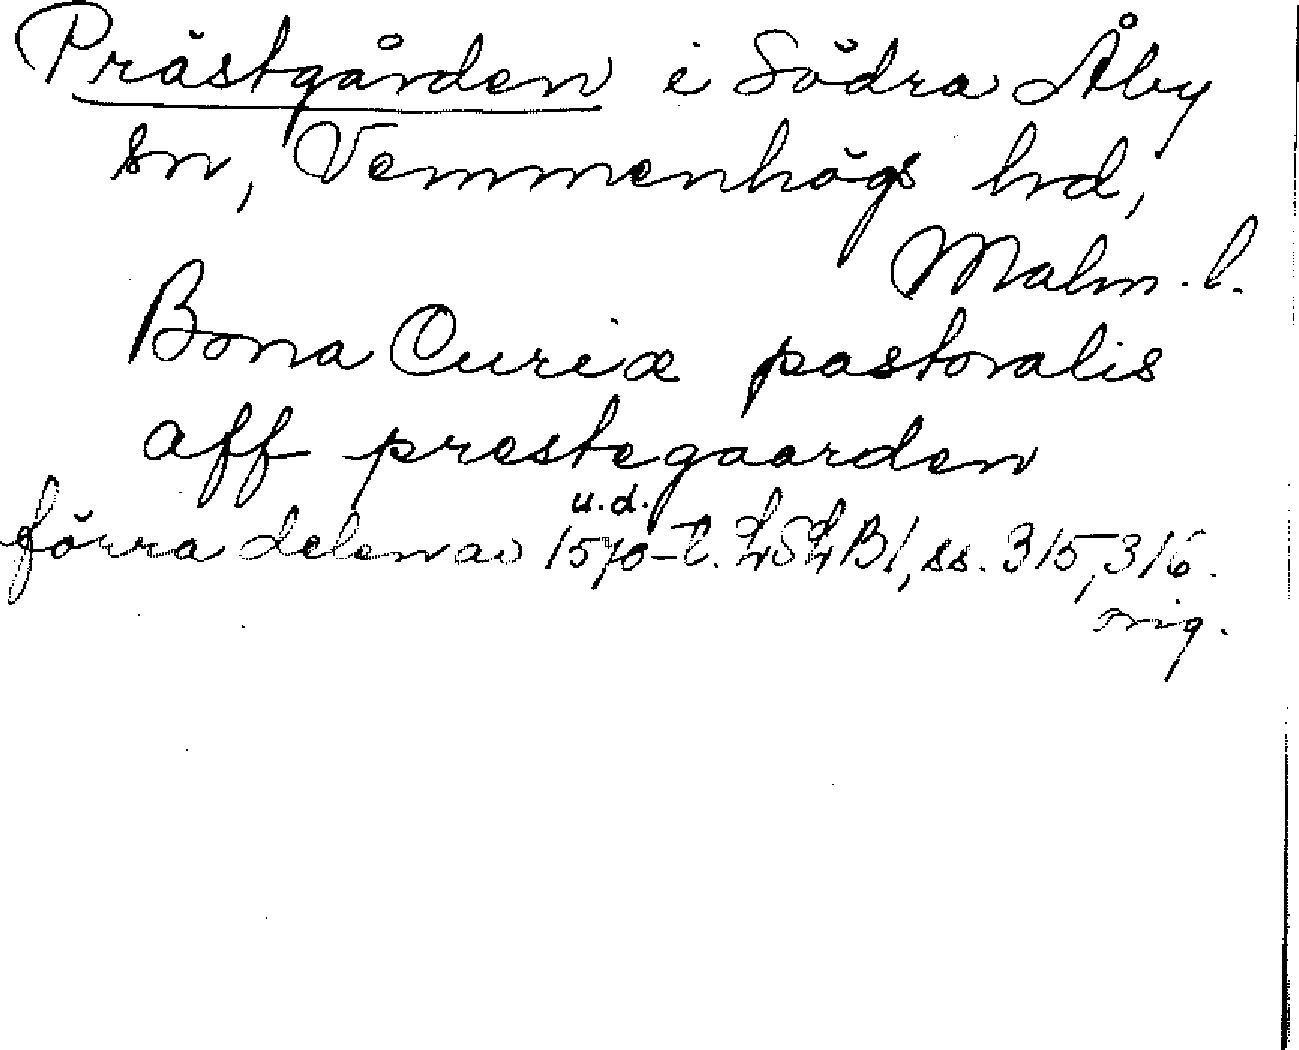 Prästgården i Södra Åby
sn, Vemmenhögs hd,
Malm. l.
Bona Curiæ pastoralis
aff prestegaarden
u.d.
förra delen av 1570-t. LSLB1, ss. 315, 316.
orig.